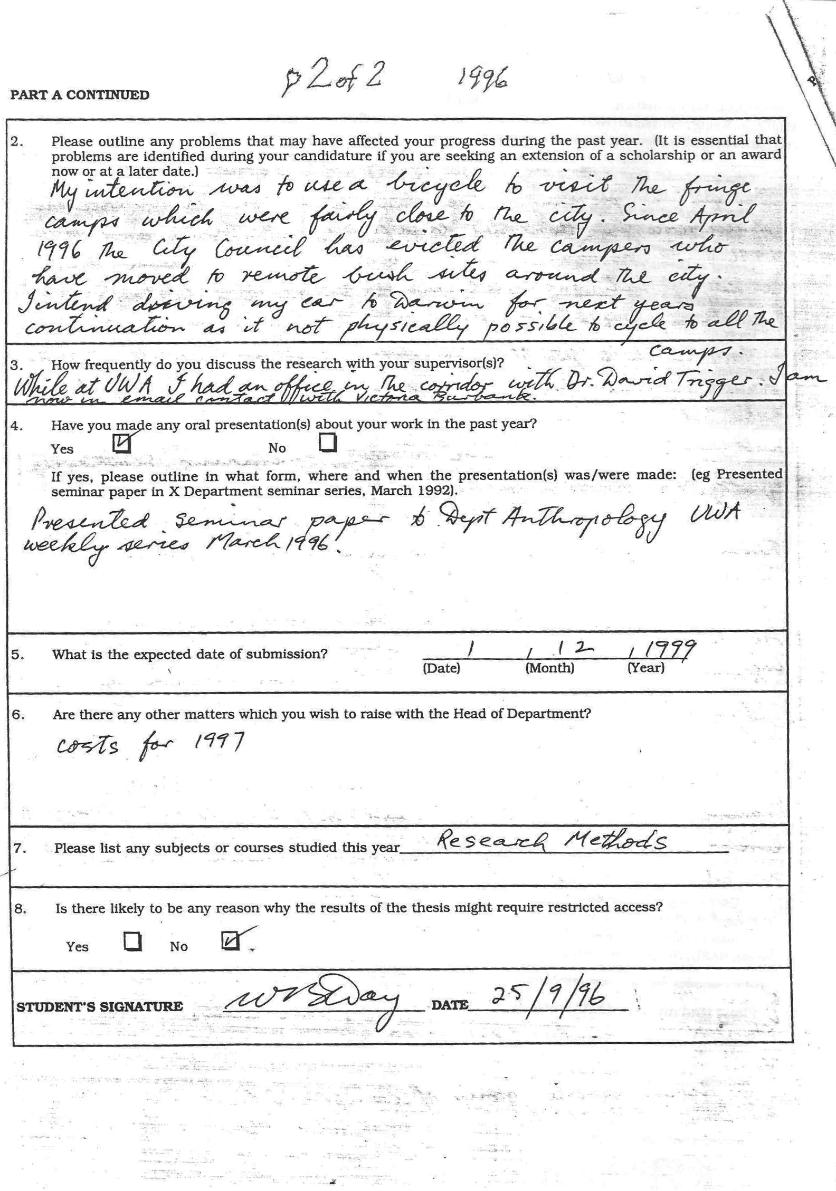 p 2 of 2 1996
PART A CONTINUED
2. Please outline any problems that may have affected your progress during the past year. (It is essential that
problems are identified during your candidature if you are seeking an extension of a scholarship or an award
now or at a later date.)
My intention was to use a bicycle to visit the fringe
camps which were fairly close to the city. Since April
1996 the City Council has evicted the campers who
have moved to remote bush sites around the city.
I intend driving my car to Darwin for next years
continuation as it not physically possible to cycle to all the
camps.
3. How frequently do you discuss the research with your supervisor(s)?
While at UWA I had an office in the corridor with Dr. David Trigger. I am
now in email contact with Victoria Burbank.
4. Have you made any oral presentation(s) about your work in the past year?
Yes No
If yes, please outline in what form, where and when the presentation(s) was/were made: (eg Presented
seminar paper in X Department seminar series, March 1992).
Presented seminar paper to Dept Anthropology UWA
weekly series March 1996.
5. What is the expected date of submission? 1 / 12 / 1999
(Date) (Month) (Year)
6. Are there any other matters which you wish to raise with the Head of Department?
costs for 1997
7. Please list any subjects or courses studied this year Research Methods
8. Is there likely to be any reason why the results of the thesis might require restricted access?
Yes No
STUDENT'S SIGNATURE WBDay DATE 25/9/96